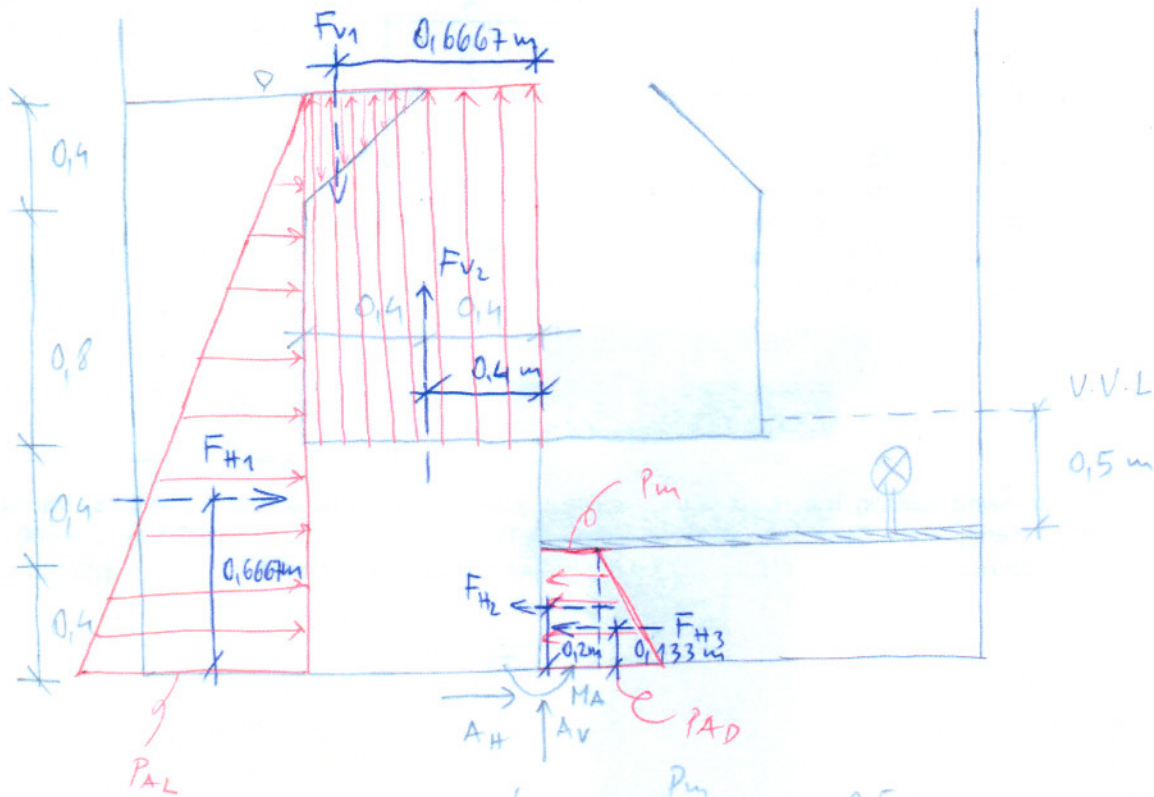 Fv1
0,6667 m
0,4
Fv2
0,4
0,4
0,8
0,4 m
V.V.L
FH1
0,5 m
Pm
0,4
0,6667m
FH2
FH3
0,4
0,2m
0,133 m
MA
AH
AV
PAD
PAL
Pm